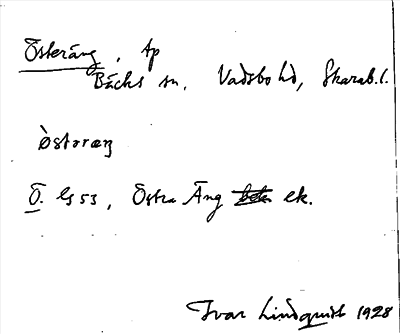 Österäng, tp
Bäcks sn, Vadsbo hd, Skarab. l.
òstəræŋ
Ö. Gs 53, Östra Äng ek.
Ivar Lindquist 1928